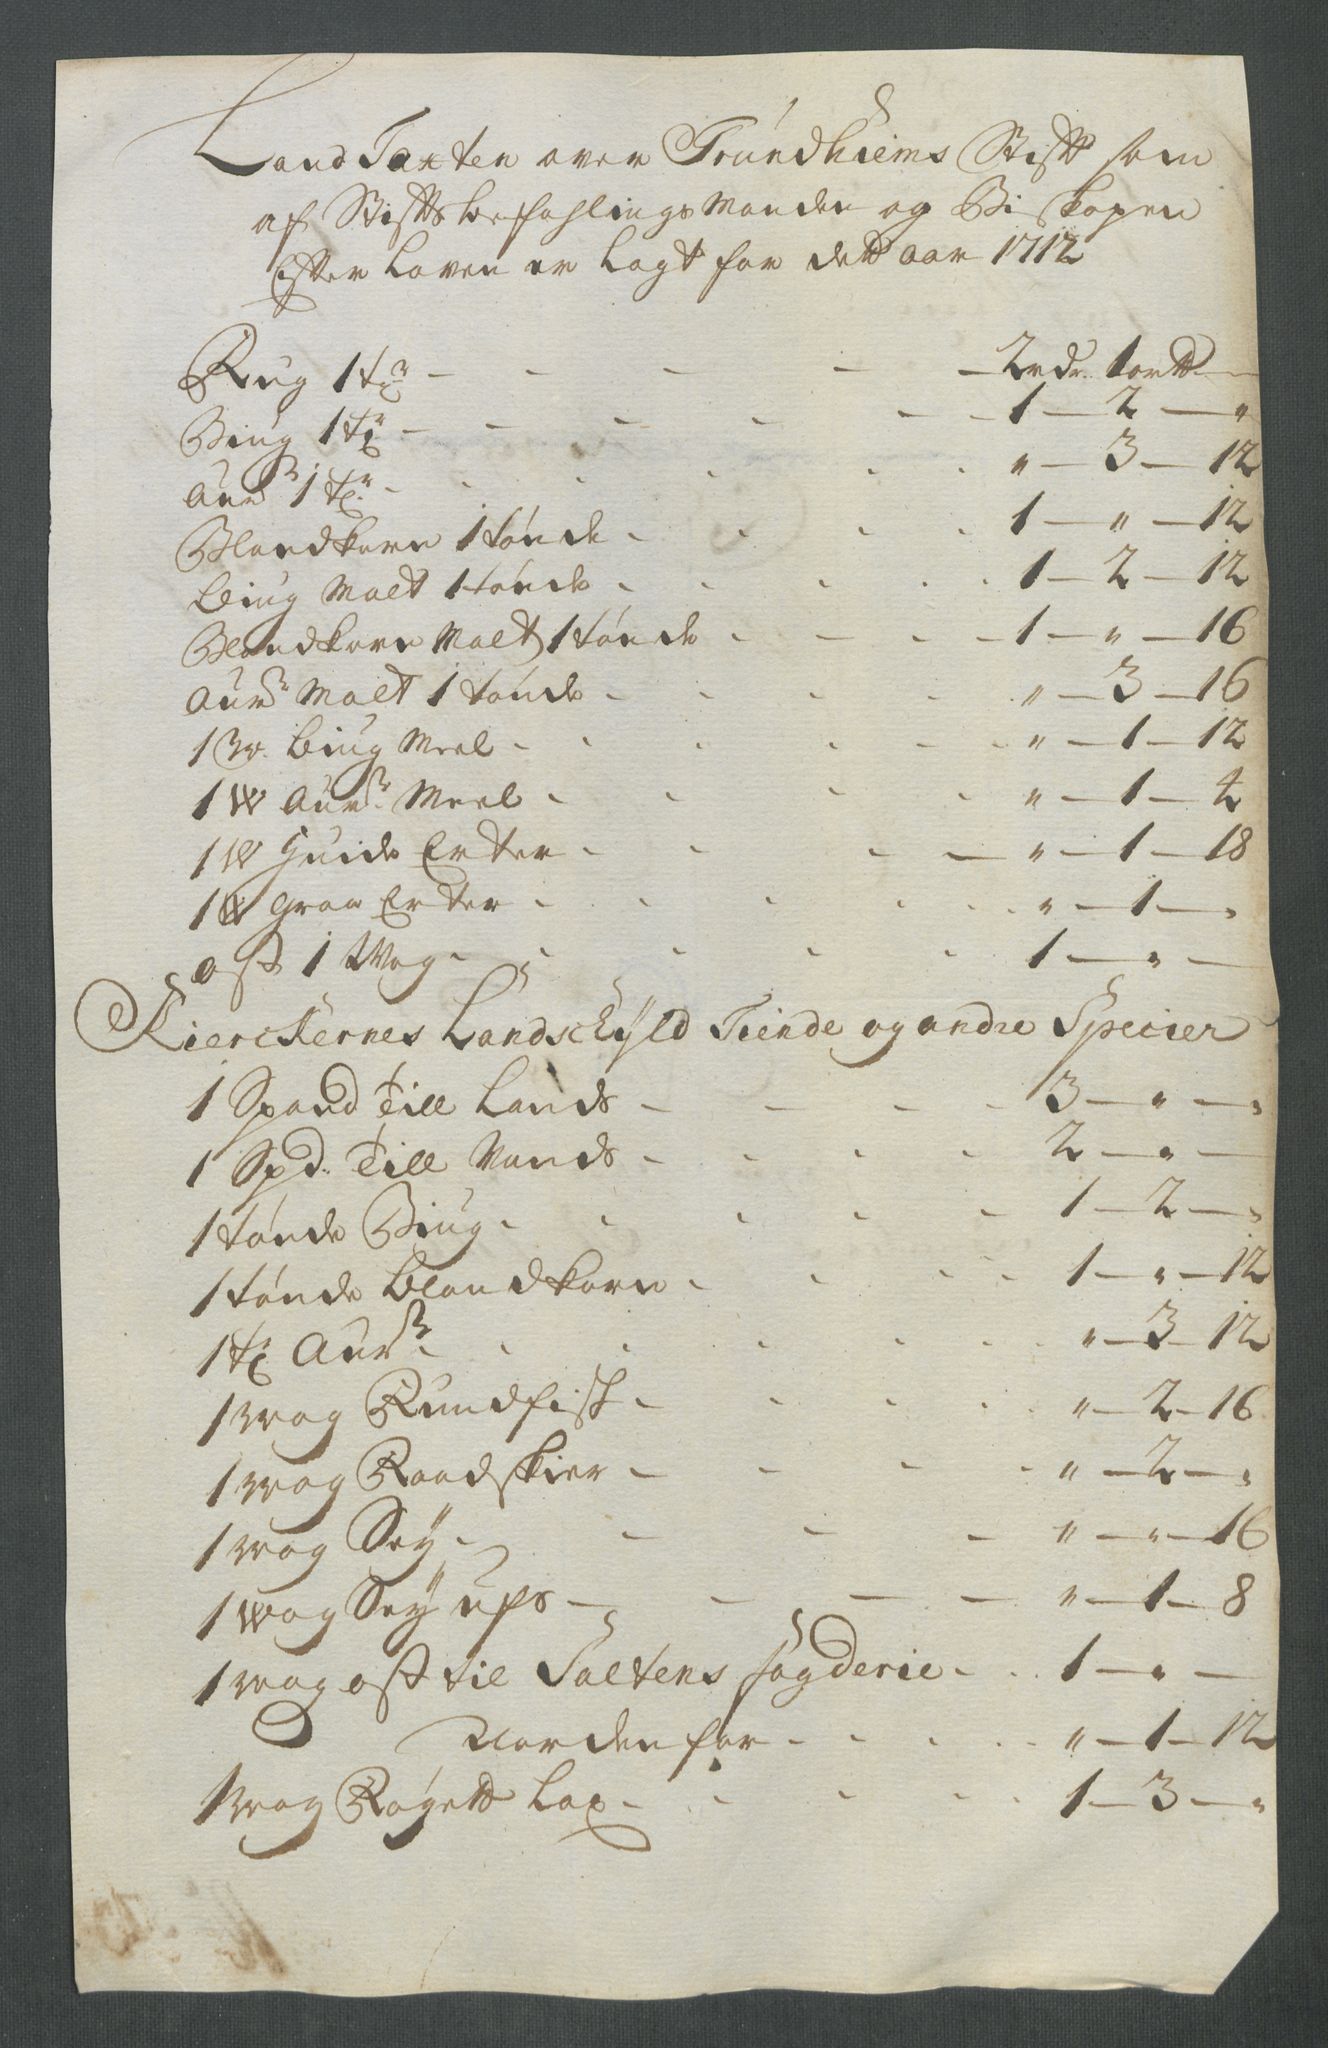 Land Taxten over Trundhiems Stift som
af Stiftsbefahlings Manden og Biskopen
Efter Loven er Lagt for dett aar 1712
Rug 1 tr - - - - 2 rdr. 1 ortt -
Biug 1 tr - - - - - 1 - 2 - "
Aur 1 tr - - - - - " - 3 - 12
Blandkorn 1 tønde - - - - 1 - " - 12
Biug Malt 1 tønde - - - - 1 - 2 - 12
Blandkorn Malt 1 tønde - - - - 1 - " - 16
Aur Malt 1 tønde - - - - " - 3 - 16
1 W. Biug Meel - - - - - " - 1 - 12
1 W Aur Meel - - - - " - 1 - 4
1 W Huide Erter - - - - " - 1 - 18
1 W Graa Erter - - - - - " - 1 - "
Ost 1 Wog - - - - - 1 - " -
Kierckernes Landschÿld Tiende og andre Specier
1 Spand Till Lands - - - - 3 - " - "
1 Spd. Till Vands - - - - 2 - " -
1 tønde Biug - - - - - 1 - 2 - "
1 tønde Blandkorn - - - - 1 - " - 12
1 tr Aur - - - - - " - 3 - 12
1 wog Rundfisk - - - - " - 2 - 16
1 wog Raadskier - - - - " - 2 - "
1 wog Seÿ - - - - " - " - 16
1 wog Seÿ ufs - - - - " - 1 - 8
1 wog ost til Saltens fogderie - - 1 - " -
Norden for - - - - " - 1 - 12
1 wog Røgett Lax - - - - 1 - 3 - "